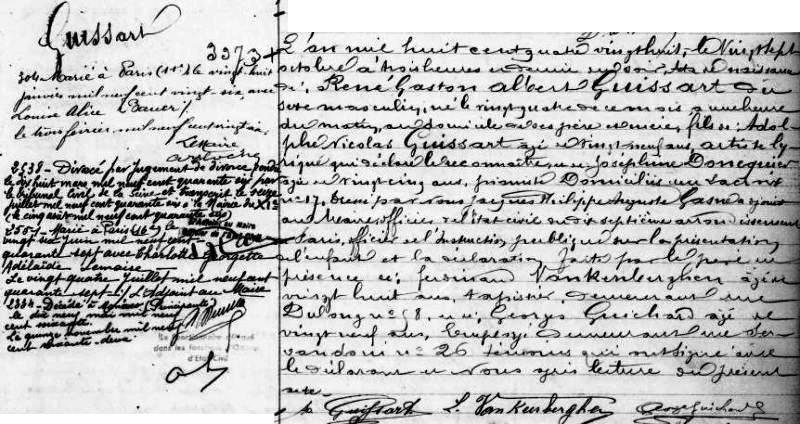 Guissart
3373
304 Marié à Paris (11e) le vingt huit
janvier mil neuf cent vingt six avec
Louise Alice
le trois février mil neuf cent vingt six
Le Maire
2538 - Divorcé par jugement de divorce rendu
le dix huit mars mil neuf cent quarante six par
le Tribunal Civil de la Seine et transcrit le seize
juillet mil neuf cent quarante six à la Mairie du XIe
mil neuf cent quarante six
Marié à Paris (16e) le
vingt six juin mil neuf cent
quarante sept avec Charlotte Georgette
Adélaïde Lemoine
Le vingt quatre juillet mil neuf cent
quarante sept L'Adjoint au Maire
2384 - Décédé à
le dix neuf mai mil neuf
cent soixante
Le quinze novembre mil neuf
cent soixante deux
L'an mil huit cent quatre vingt huit, le Vingt sept
octobre à trois heures et demie du soir, Acte de naissance
de René Gaston Albert Guissart du
sexe masculin, né le vingt quatre de ce mois à une heure
du matin, au domicile de ses père et mère, fils de Adol-
phe Nicolas Guissart âgé de vingt neuf ans, artiste ly-
rique qui déclare le reconnaître, et de Joséphine Doneguier
âgée de vingt cinq ans, Domiciliés rue
n° 17. Dressé par nous Jacques Philippe Auguste adjoint
au Maire, officier de l'état civil du dix septième arrondissement
de Paris, officier de l'Instruction publique sur la présentation
de l'enfant et la déclaration faite par le père en
présence de Fernand Vankenberghen âgé de
vingt huit ans, tapissier demeurant rue
Dulong n° 58, et de Georges Guichard âgé de
vingt neuf ans, Employé demeurant rue Ser-
vandoni n° 26 témoins qui ont signé avec
le déclarant et Nous après lecture du présent
acte.
Guissart F. Vankenberghen Georges Guichard